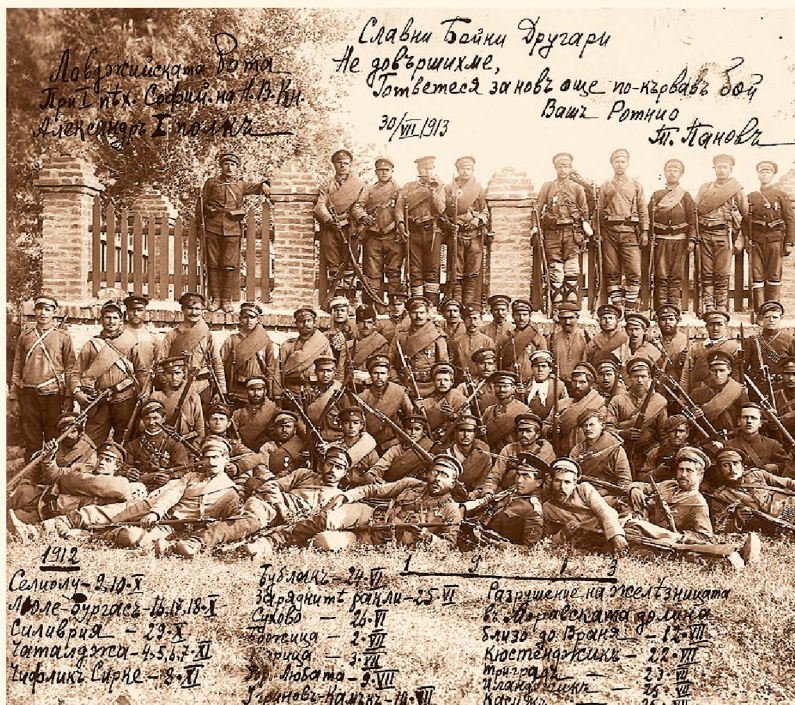 Ловджийската Рота
При I пѣх. Софий. на Н. В. Кн.
Александръ I полкъ
Славни Бойни Другари
Не довършихме,
Гответеся за новъ още по-кървавъ бой
Вашъ Ротнио
Т. Пановъ
30/VII 1913
1912
Селиолу - 9, 10 - X
Люле-Бургасъ - 16, 17, 18 - X
Силиврия - 29 - X
Чаталджа - 4, 5, 6, 7 - XI
Чифликъ Сирке - 8 - XI
1 9 1 3
Бублякъ - 24 - VI
Заряднитѣ ранли - 25 - VI
Сухово - 26 - VI
Божица - 2 - VII
- 3 - VII
Гор. Любата - 9 - VII
Камъкъ - 10 - VII
Разрушение на желѣзницата
въ Моравската долина
близо до Враня - 12 - VII
Кюстенджикъ - 22 - VII
Триградъ - 23 - VII
- 25 - VII